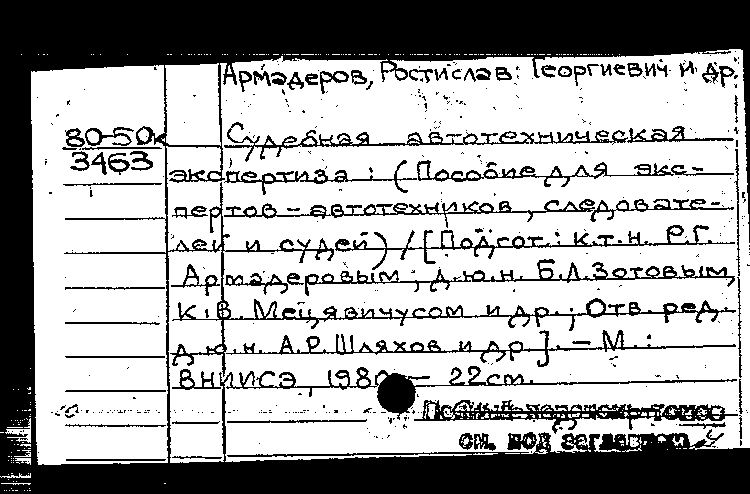 Армадеров, Ростислав Георгиевич и др.
80-50к
3463
Судебная автотехническая
экспертиза : (Пособие для экс-
пертов-автотехников, следовате-
лей и судей) / [Подгот.: к.т.н. Р.Г.
Армадеровым; д.ю.н. Б.Л. Зотовым,
К.В. Мецявичусом и др.; Отв. ред.
д.ю.н. А.Р. Шляхов и др.]. - М.:
ВНИИСЭ, 1980 - 22 см.
см. под заглавием